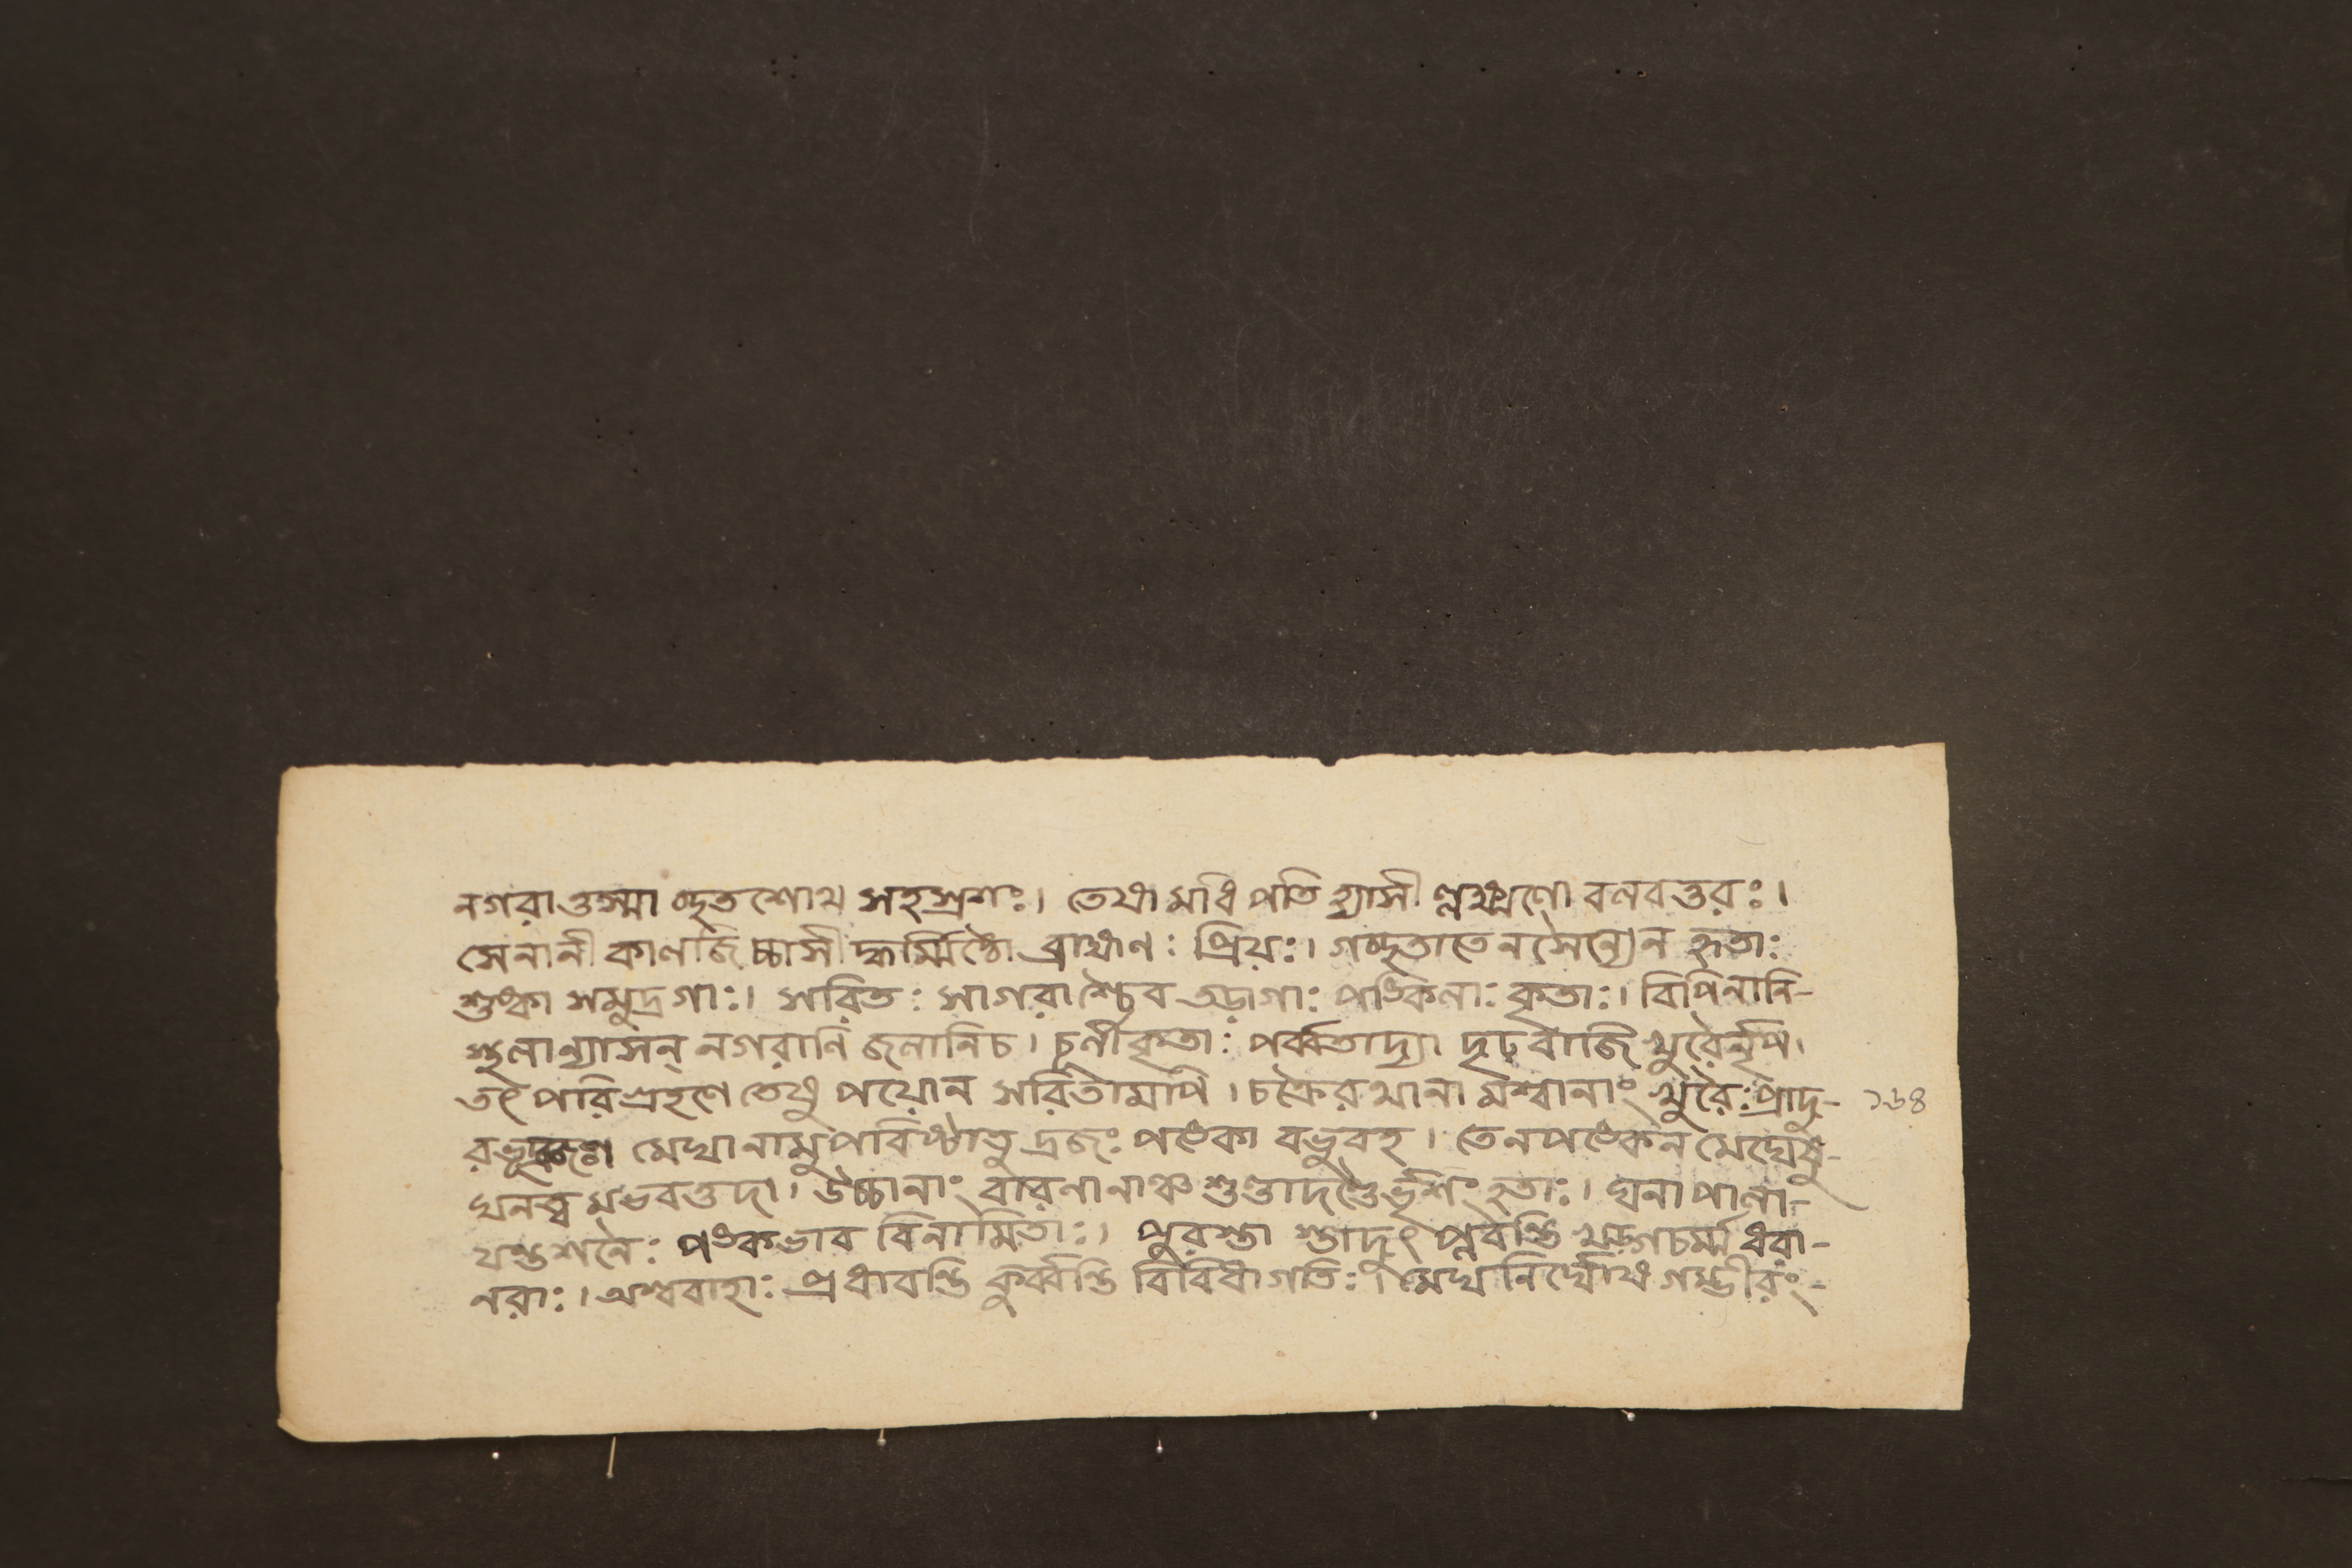 নগরাত্তস্মাচ্ছতশোথ সহস্রশঃ। তেষামাধিপতিহ্যাসীল্লক্ষ্মণো বলবত্তরঃ।
সেনানী কালজিচ্চাসীদ্ধর্ম্মিষ্ঠো ব্রাহ্মণঃ প্রিয়ঃ। গচ্ছতাতেন সৈন্যেন হৃতাঃ
শুষ্কা সমুদ্রগাঃ। সরিতঃ সাগরাশ্চৈব তড়াগাঃ পঙ্কিলাঃ কৃতাঃ। বিপিনানি-
স্থলান্যাসন্ নগরাণি জলানিচ। চূর্ণীকৃতাঃ পর্ব্বতাদ্যা দৃঢবাজি খুরৈর্নৃপ।
তৎ পরিগ্রহণে তেষু পয়োন সরিতামপি। চক্রৈরথানামশ্বানাং খুরৈঃ প্রাদু- ১৬৪
রভূদ্রজঃ। মেঘানামুপরিষ্ঠাত্তু দ্রজঃ পঙ্কো বভুবহ। তেনপঙ্কেন মেঘেষু-
ঘনত্বমভবত্তদা। উচ্চানাং বারণানাঞ্চ শুণ্ডাদণ্ডৈর্ভৃশং হতাঃ। ঘনা পানা-
যন্তশনৈঃ পঙ্কভাব বিনামিতাঃ। পুরস্তা স্তাদুৎপ্লবন্তি খড়্গচর্ম্ম ধরা-
নরাঃ। অশ্ববাহাঃ প্রধাবন্তি কুর্ব্বন্তি বিবিধাগতিঃ। মেঘনির্ঘোষ গম্ভীরং-